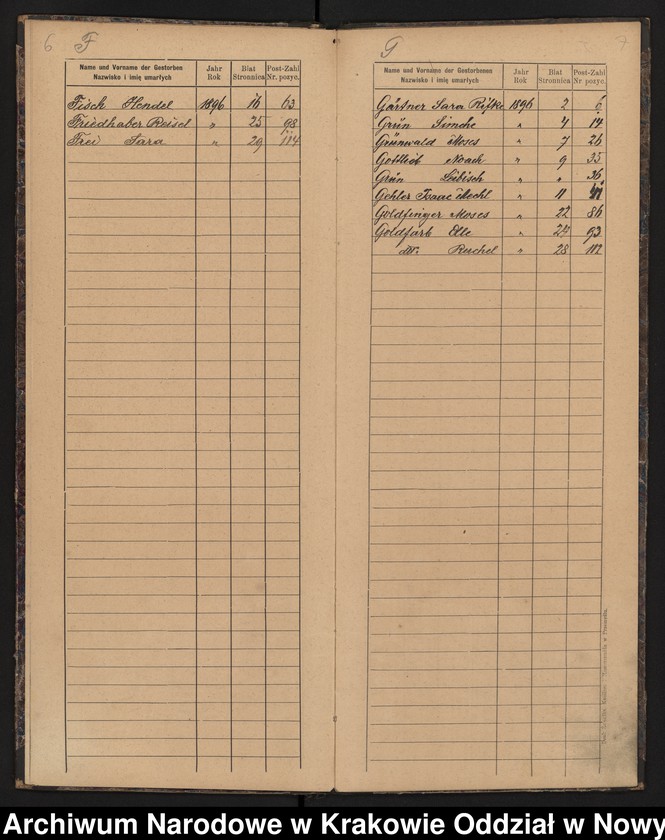 6 F
Name und Vorname der Gestorben Jahr Blat Post-Zahl
Nazwisko i imię umarłych Rok Stronnica Nr. pozyc.
Fisch Hendel 1896 16 63
Friedhaber Reisel " 25 98
Frei Sara " 29 114
G 7
Name und Vorname der Gestorbenen Jahr Blat Post-Zahl
Nazwisko i imię umarłych Rok Stronnica Nr. pozyc.
Gärtner Sara Rifke 1896 2 6
Grün Simche " 4 14
Grünwald Moses " 7 26
Gottlieb Noach " 9 35
Grün Leibisch " " 36
Gehler Isaac Mechl " 11
Goldfinger Moses " 22 86
Goldfarb Elle " 24 93
dto. Reichel " 28 112
Archiwum Narodowe w Krakowie Oddział w Nowy